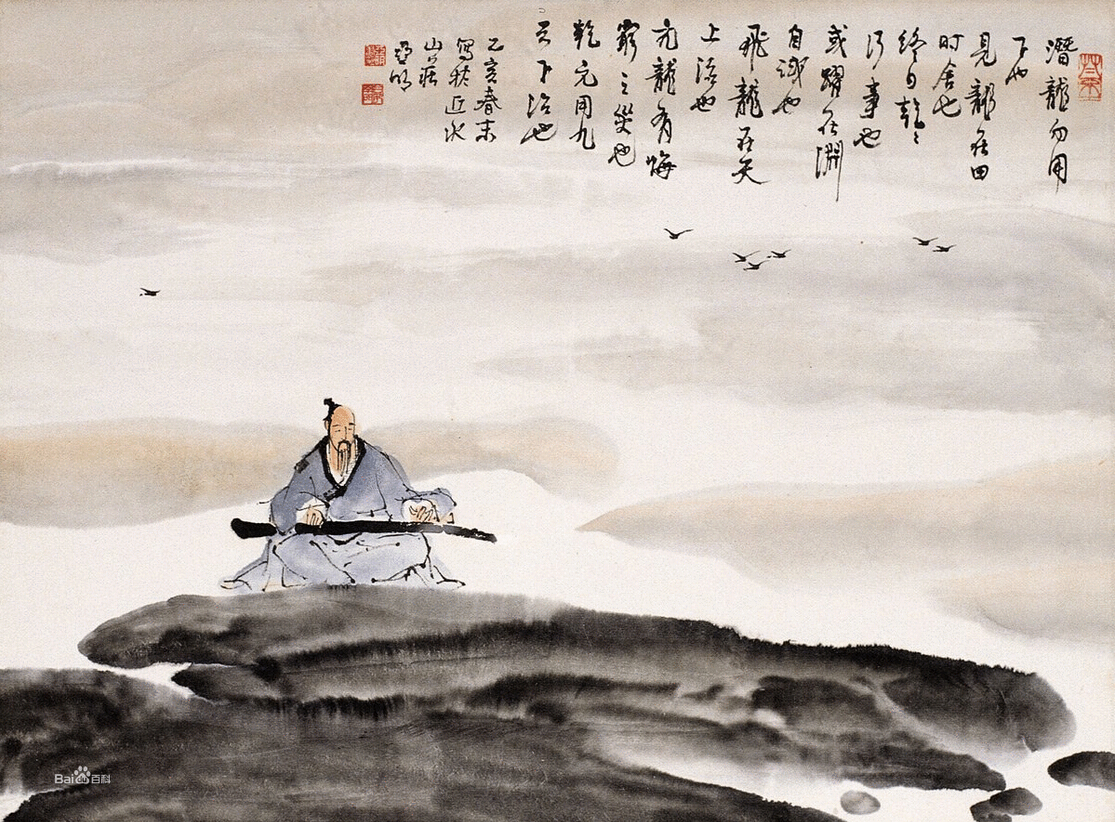 潛龍勿用
下也
見龍在田
时舍也
終日乾〻
行事也
或躍在淵
自試也
飛龍在天
上治也
亢龍有悔
窮之災也
乾元用九
天下治也
乙亥春末
寫於近水
山莊
亞明
Bai百科